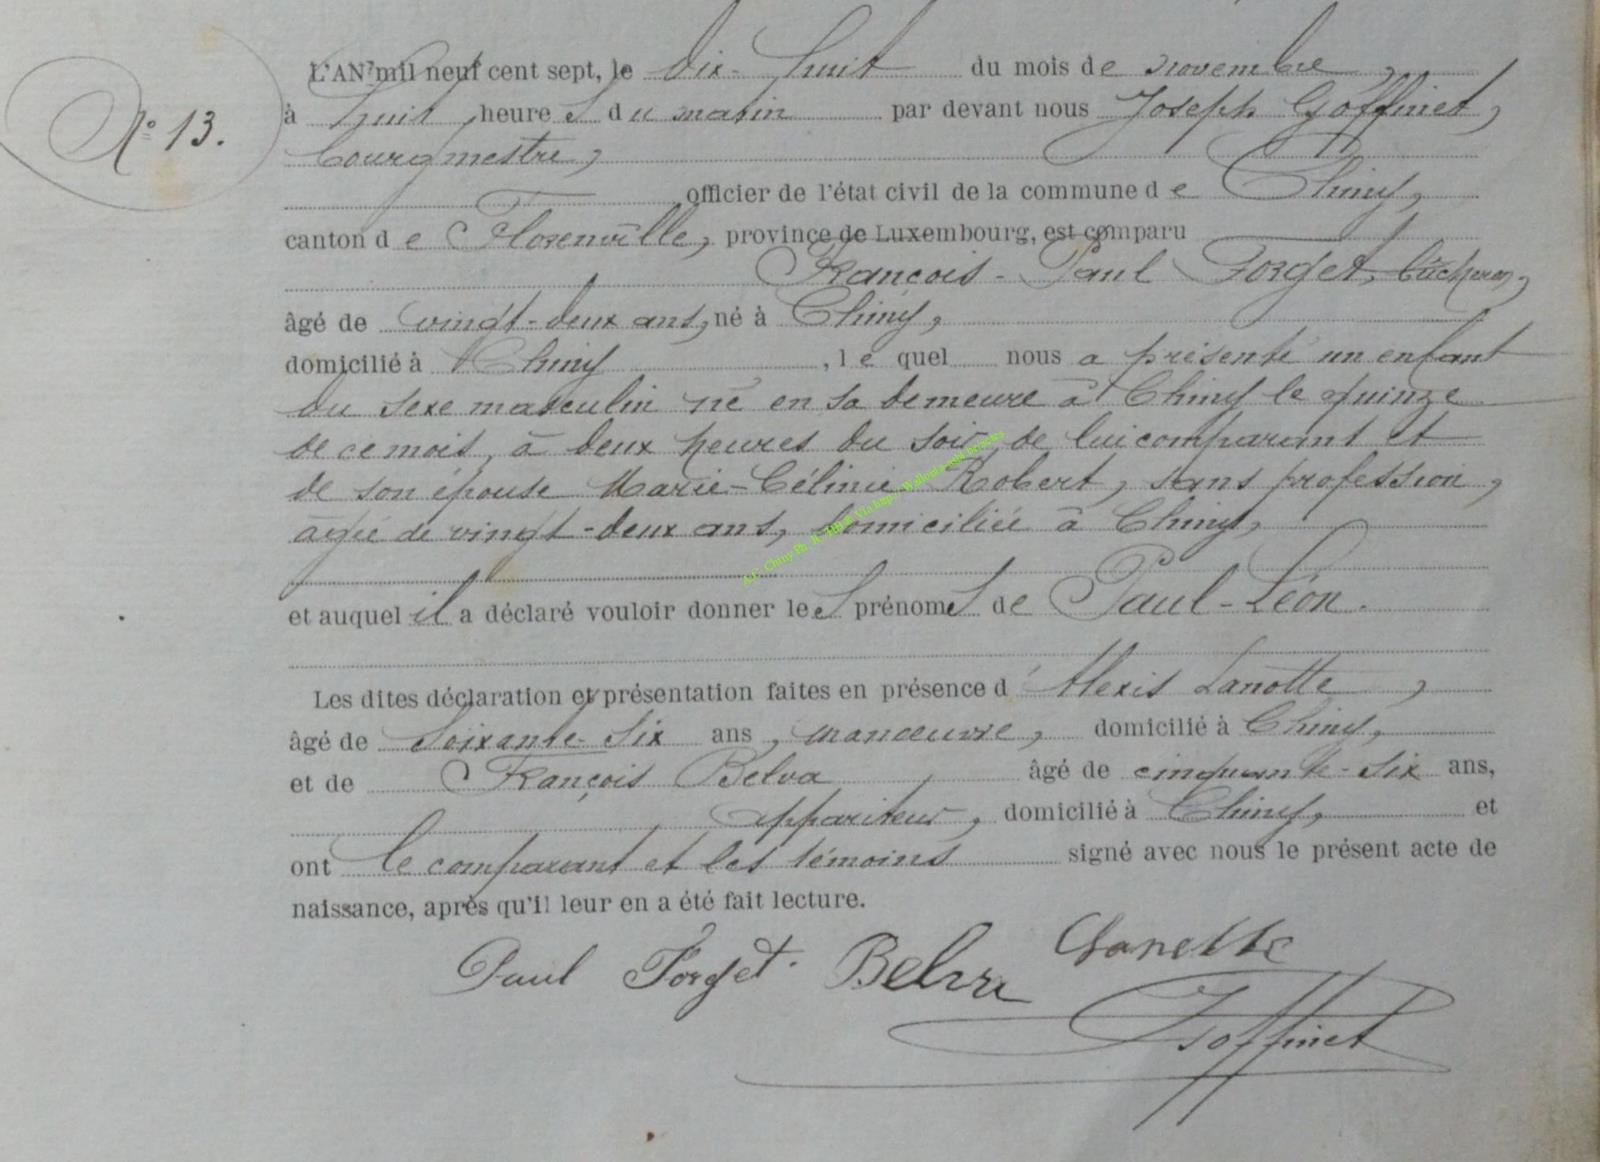 N° 13.
L'AN mil neuf cent sept, le dix-huit du mois de novembre,
à huit heures du matin par devant nous Joseph Goffinet,
bourgmestre,
officier de l'état civil de la commune de Chiny,
canton de Florenville, province de Luxembourg, est comparu
François-Paul Forget, bûcheron,
âgé de vingt-deux ans, né à Chiny,
domicilié à Chiny, lequel nous a présenté un enfant
du sexe masculin né en sa demeure à Chiny le quinze
de ce mois, à deux heures du soir, de lui comparant et
de son épouse Marie-Célinie Robert, sans profession,
âgée de vingt-deux ans, domiciliée à Chiny,
et auquel il a déclaré vouloir donner les prénoms de Paul-Léon.
Les dites déclaration et présentation faites en présence d'Alexis Lanotte,
âgé de soixante-six ans, manœuvre, domicilié à Chiny,
et de François Belva âgé de cinquante-six ans,
appariteur, domicilié à Chiny, et
ont le comparant et les témoins signé avec nous le présent acte de
naissance, après qu'il leur en a été fait lecture.
Paul Forget. Belva
Goffinet